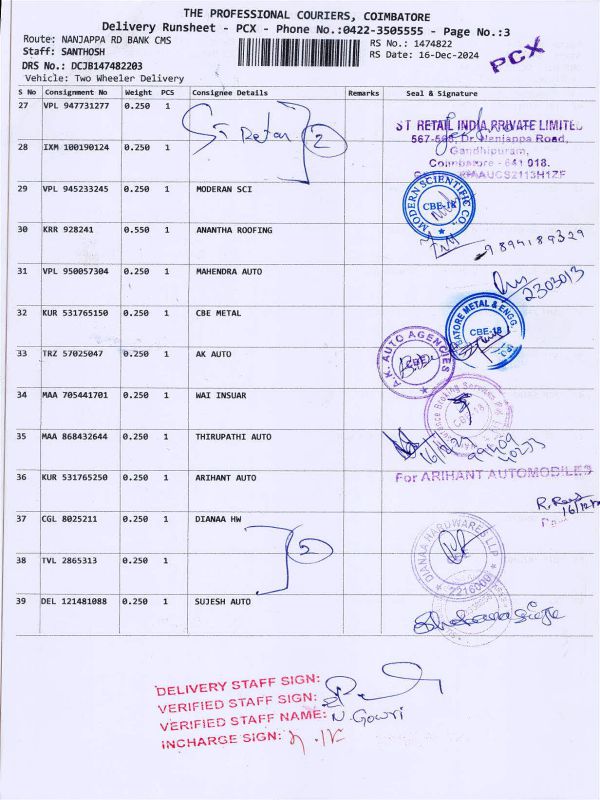 THE PROFESSIONAL COURIERS, COIMBATORE
Delivery Runsheet - PCX - Phone No.:0422-3505555 - Page No.:3
Route: NANJAPPA RD BANK CMS
RS No.: 1474822
Staff: SANTHOSH
RS Date: 16-Dec-2024
PCX
DRS No.: DCJB147482203
Vehicle: Two Wheeler Delivery
S No Consignment No Weight PCS Consignee Details Remarks Seal & Signature
27 VPL 947731277 0.250 1
ST Retail 2
ST RETAIL INDIA PRIVATE LIMITED
567-568, Dr. Nanjappa Road,
28 IXM 100190124 0.250 1
Gandhipuram,
Coimbatore - 641 018.
29 VPL 945233245 0.250 1 MODERAN SCI
MODERN SCIENTIFIC CO.
CBE-18
30 KRR 928241 0.550 1 ANANTHA ROOFING
9894189329
31 VPL 950057304 0.250 1 MAHENDRA AUTO
2303013
32 KUR 531765150 0.250 1 CBE METAL
METAL & ENGG.
CBE-18
33 TRZ 57025047 0.250 1 AK AUTO
A.K. AUTO AGENCIES
CBE
34 MAA 705441701 0.250 1 WAI INSUAR
Broking Services
CBE-18
35 MAA 868432644 0.250 1 THIRUPATHI AUTO
36 KUR 531765250 0.250 1 ARIHANT AUTO
For ARIHANT AUTOMOBILES
37 CGL 8025211 0.250 1 DIANAA HW
DIANAA HARDWARES LLP
2
38 TVL 2865313 0.250 1
39 DEL 121481088 0.250 1 SUJESH AUTO
DELIVERY STAFF SIGN:
VERIFIED STAFF SIGN:
VERIFIED STAFF NAME: N. Gowri
INCHARGE SIGN: